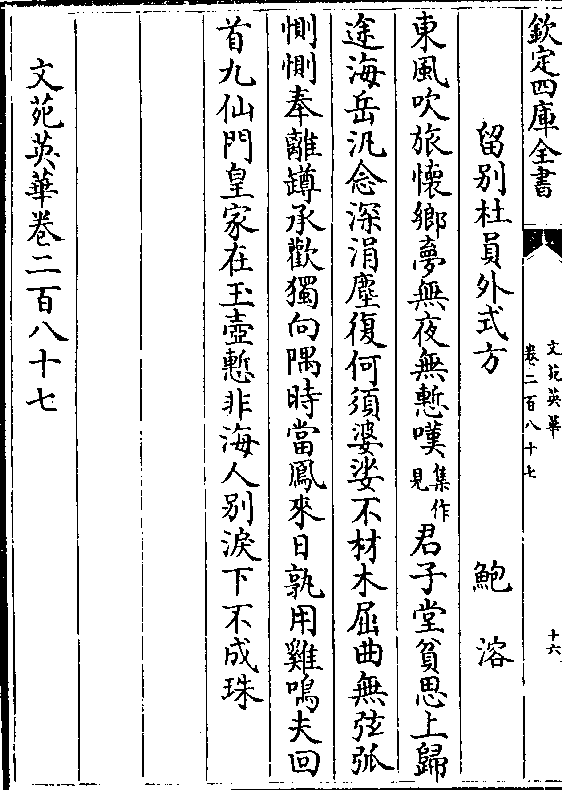 欽定四庫全書
文苑英華
卷二百八十七
十六
留別杜員外式方 鮑溶
東風吹旅懷鄉夢無夜無慙嘆集作見君子堂貧思上歸
途海岳汎念深涓塵復何須婆娑不材木屈曲無弦弧
惻惻奉離罇承歡獨向隅時當鳳來日孰用雞鳴夫回
首九仙門皇家在玉壺慙非海人別淚下不成珠
文苑英華卷二百八十七